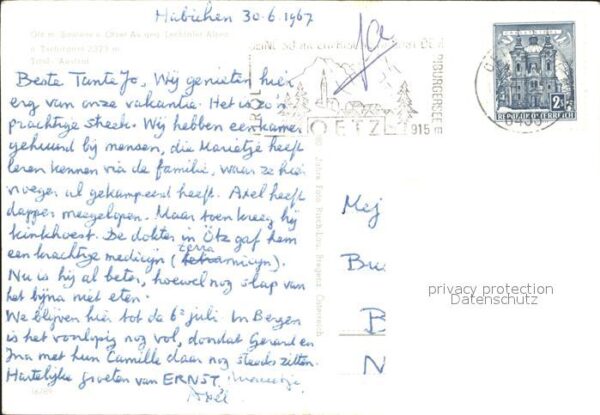 Habichen 30.6.1967
Beste Tante Jo, Wij genieten hier
erg van onze vakantie. Het is zo'n
prachtige streek. Wij hebben een kamer
gehuurd bij mensen, die Marietje heeft
leren kennen via de familie, waar ze hier
vroeger al gekampeerd heeft. Axel heeft
dapper meegelopen. Maar toen kreeg hij
kinkhoest. De dokter in Ötz gaf hem
een krachtige medicijn (terra
Nu is hij al beter, hoewel nog slap van
het bijna niet eten.
We blijven hier tot de 6e juli In Bergen
is het voorlopig nog vol, doordat Gerard en
Ina met hun Camille daar nog steeds zitten.
Hartelijke groeten van ERNST, Marietje
Axel
OETZ
915
2
REPUBLIK ÖSTERREICH
6433
Mej
Bu
B
N
privacy protection
Datenschutz